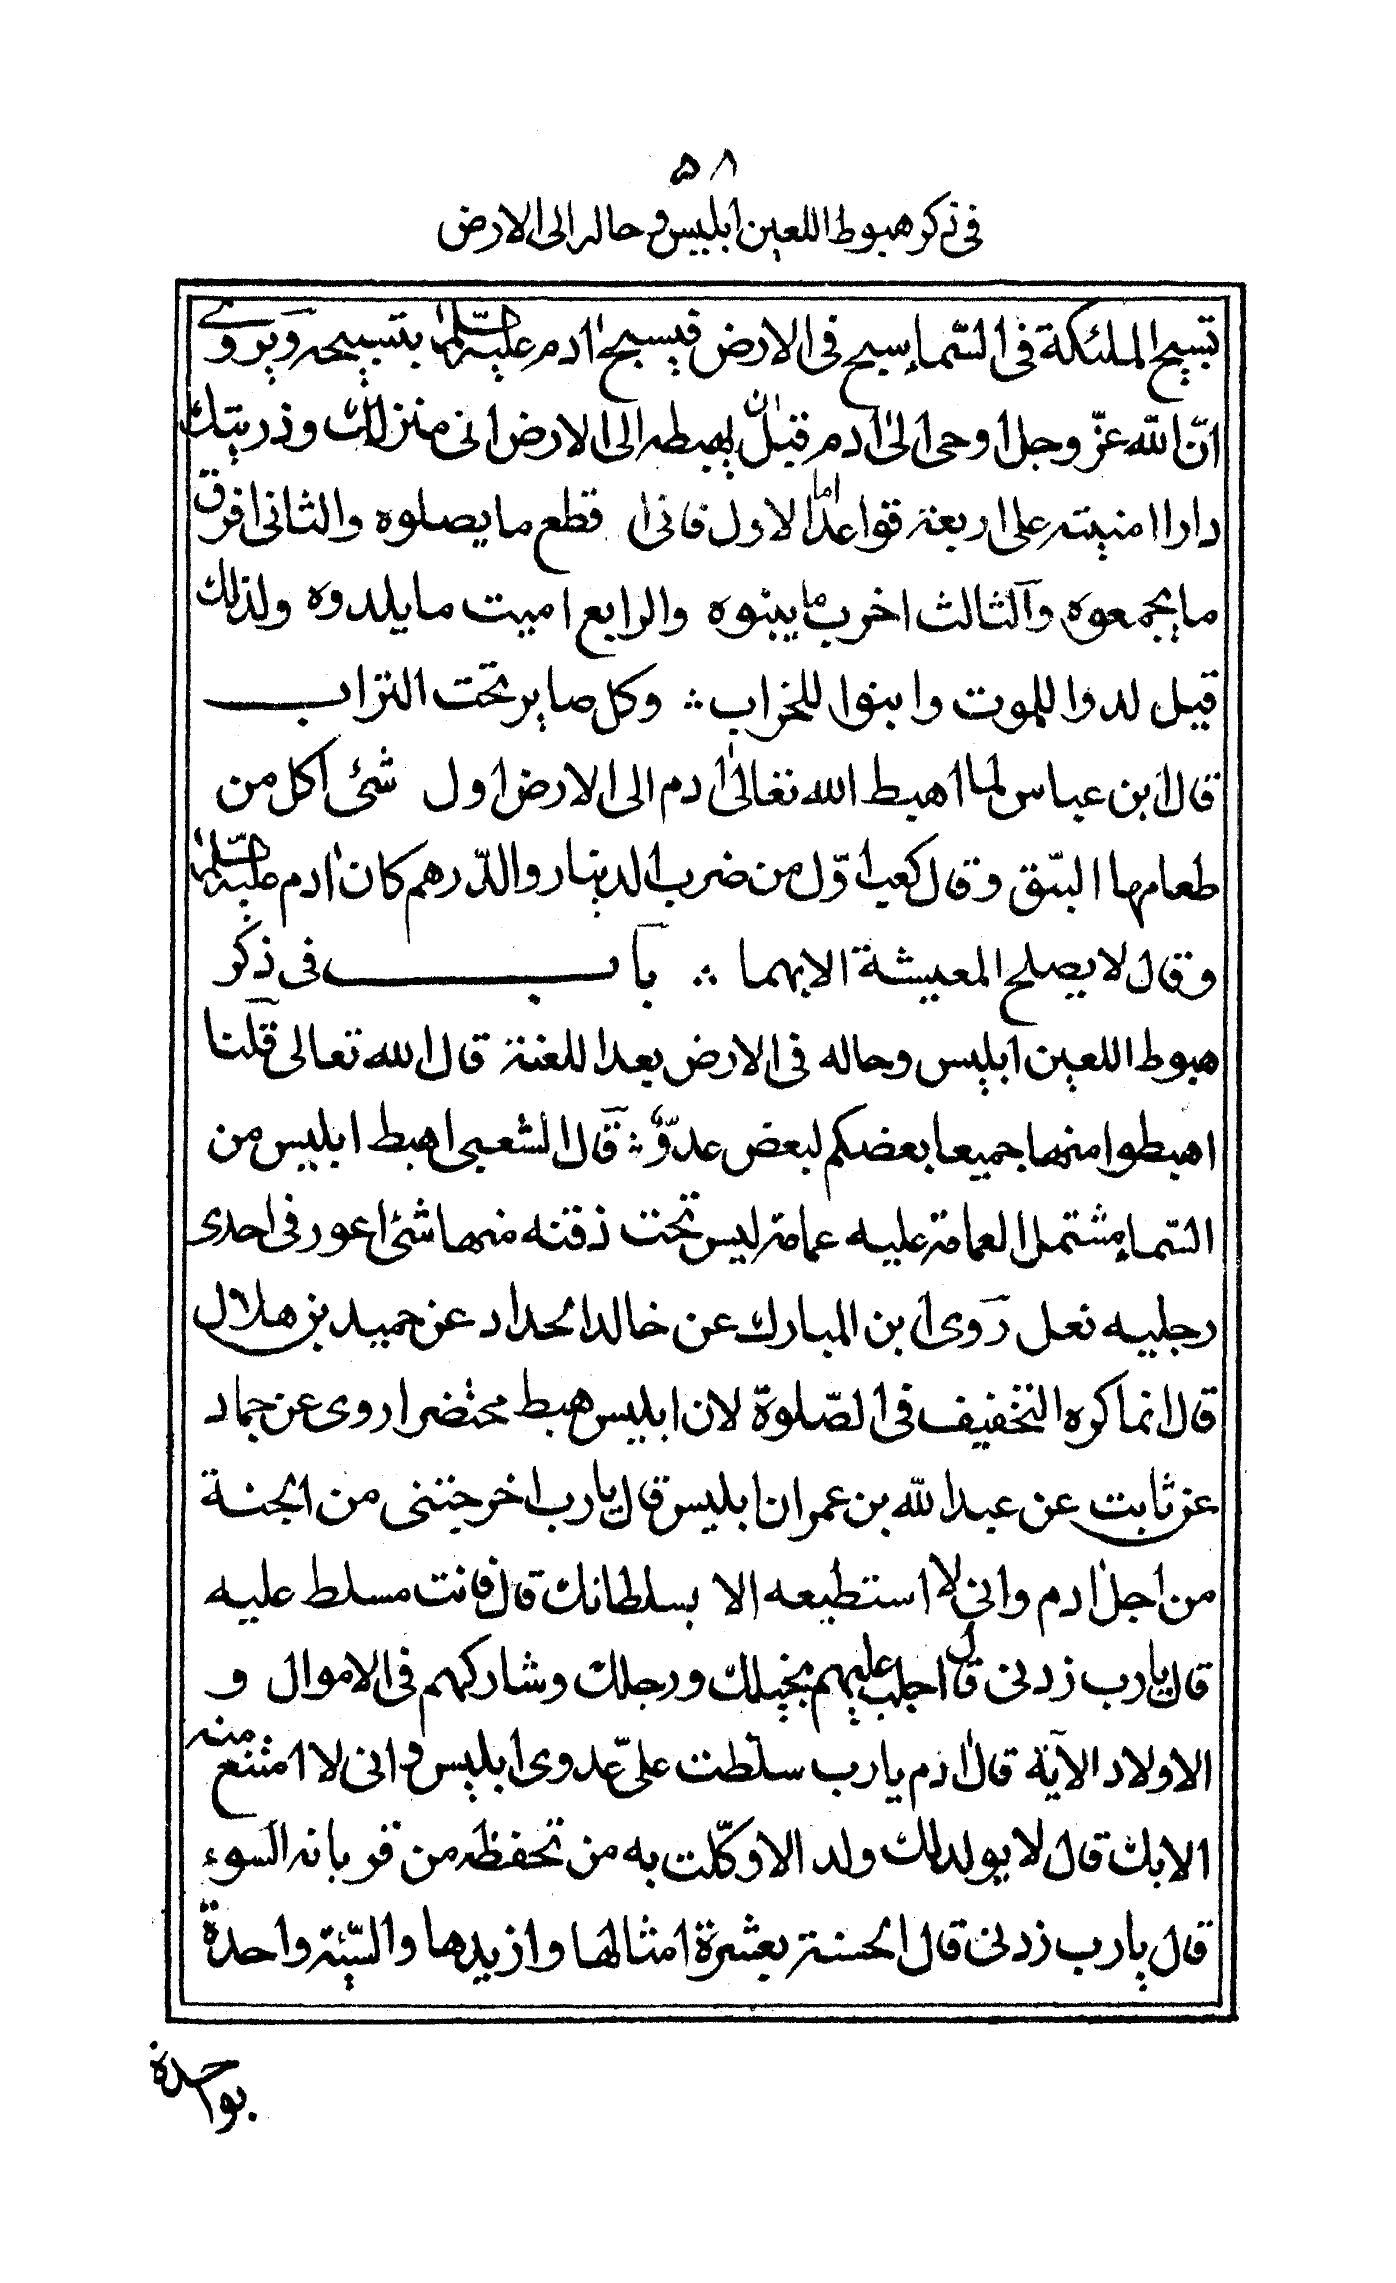 ٥٨
في ذكر هبوط اللعين ابليس و حاله الى الارض
تسبيح الملئكة في السّماء يسبح في الارض فيسبح اٰدم عليه السلام بتسبيحه ويروى
انّ الله عزّ وجل اوحى الىٰ اٰدم قبل ان يهبطه الى الارض اني منزلك وذريتك
دارا امنيته على اربعة قواعد اما الاول فاني اقطع ما يصلوه والثاني افرق
ما يجمعوه والثالث اخرب ما يبنوه والرابع اميت ما يلدوه ولذلك
قيل لدوا للموت وابنوا للخراب ∴ وكل صاير تحت التراب
قال ابن عباس لما اهبط الله تعالىٰ اٰدم الى الارض اول شئ اكل من
طعامها النبق وقال كعب اوّل من ضرب الدينار والدّرهم كان اٰدم عليه السلام
وقال لا يصلح المعيشة الا بهما ∴ باب في ذكر
هبوط اللعين ابليس وحاله في الارض بعد اللعنة قال الله تعالى قلنا
اهبطوا منها جميعا بعضكم لبعض عدوّ ∴ قال الشعبي اهبط ابليس من
السّماء مشتمل العمامة عليه عمامة ليس تحت ذقنه منها شئ اعور في احدى
رجليه نعل روى ابن المبارك عن خالد الحداد عن حميد بن هلال
قال انما كره التخفيف في الصّلوة لان ابليس هبط مختضرا روى عن حماد
عن ثابت عن عبد الله بن عمران ابليس قال يارب اخرجتني من الجنة
من اجل اٰدم واني لا استطيعه الا بسلطانك قال فانت مسلط عليه
قال يارب زدني قال اجلب عليهم بخيلك ورجلك وشاركهم في الاموال و
الاولاد الآية قال اٰدم يارب سلّطت عليّ عدوى ابليس واني لا امتنع منه
الا بك قال لا يولد لك ولد الا وكّلت به من تحفظه من قربانه السوء
قال يارب زدني قال الحسنة بعشرة امثالها وازيدها والسّيّئة واحدة
بواحدة